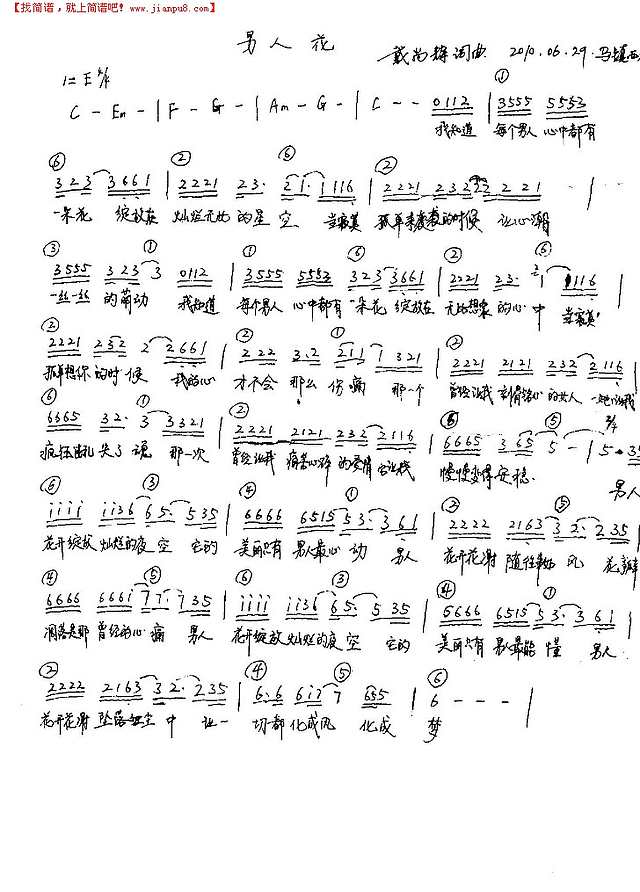 【找简谱，就上简谱吧! www.jianpu8.com】
男人花
戴尚 词曲 2010.06.29.马
1=E 4/4
C - Em - | F - G - | Am - G - | C - - 0112 | 3555 5553
我知道 每个男人 心中都有
323 3661 | 2221 23· 21· 1116 | 2221
一朵花 绽放在 灿烂 的星空 当寂寞 孤单 的时候 让心潮
3555 323 3 0112 | 3555 5553 323 3661 | 2221 23· 1 116
一丝一丝 的萌动 我知道 每个男人 心中都有 一朵花 绽放在 无比想象 的心中 当寂寞
2221 232 2 2661 | 222 3·2 211 1 321 | 2221 2121 232 2116
孤单想你 的时候 我的心 才不会 那么 伤痛 那一个 曾经让我 的女人
6665 32· 3 3321 | 2221 2121 232 2116 | 6665 365 5 - | 5·35
疯狂 失了魂 那一次 曾经让我 痛苦心碎 的爱情 慢慢变得 安稳 男人
iiii ii36 65· 535 | 6666 6515 53· 361 | 2222 2163 32· 235
花开绽放 灿烂的夜空 它的 美丽只有 男人最心动 男人 花开花谢 随 风 花瓣
6666 6661 77· 735 | iiii ii36 65· 535 | 6666 6515 53· 361
凋落是那 曾经的心痛 男人 花开绽放 灿烂的夜空 它的 美丽只有 男人最能懂 男人
2222 2163 32· 235 | 6·6 6i7 7 655 | 6 - - - |
花开花谢 坠落 空中 让一 切都 化成风 化成 梦